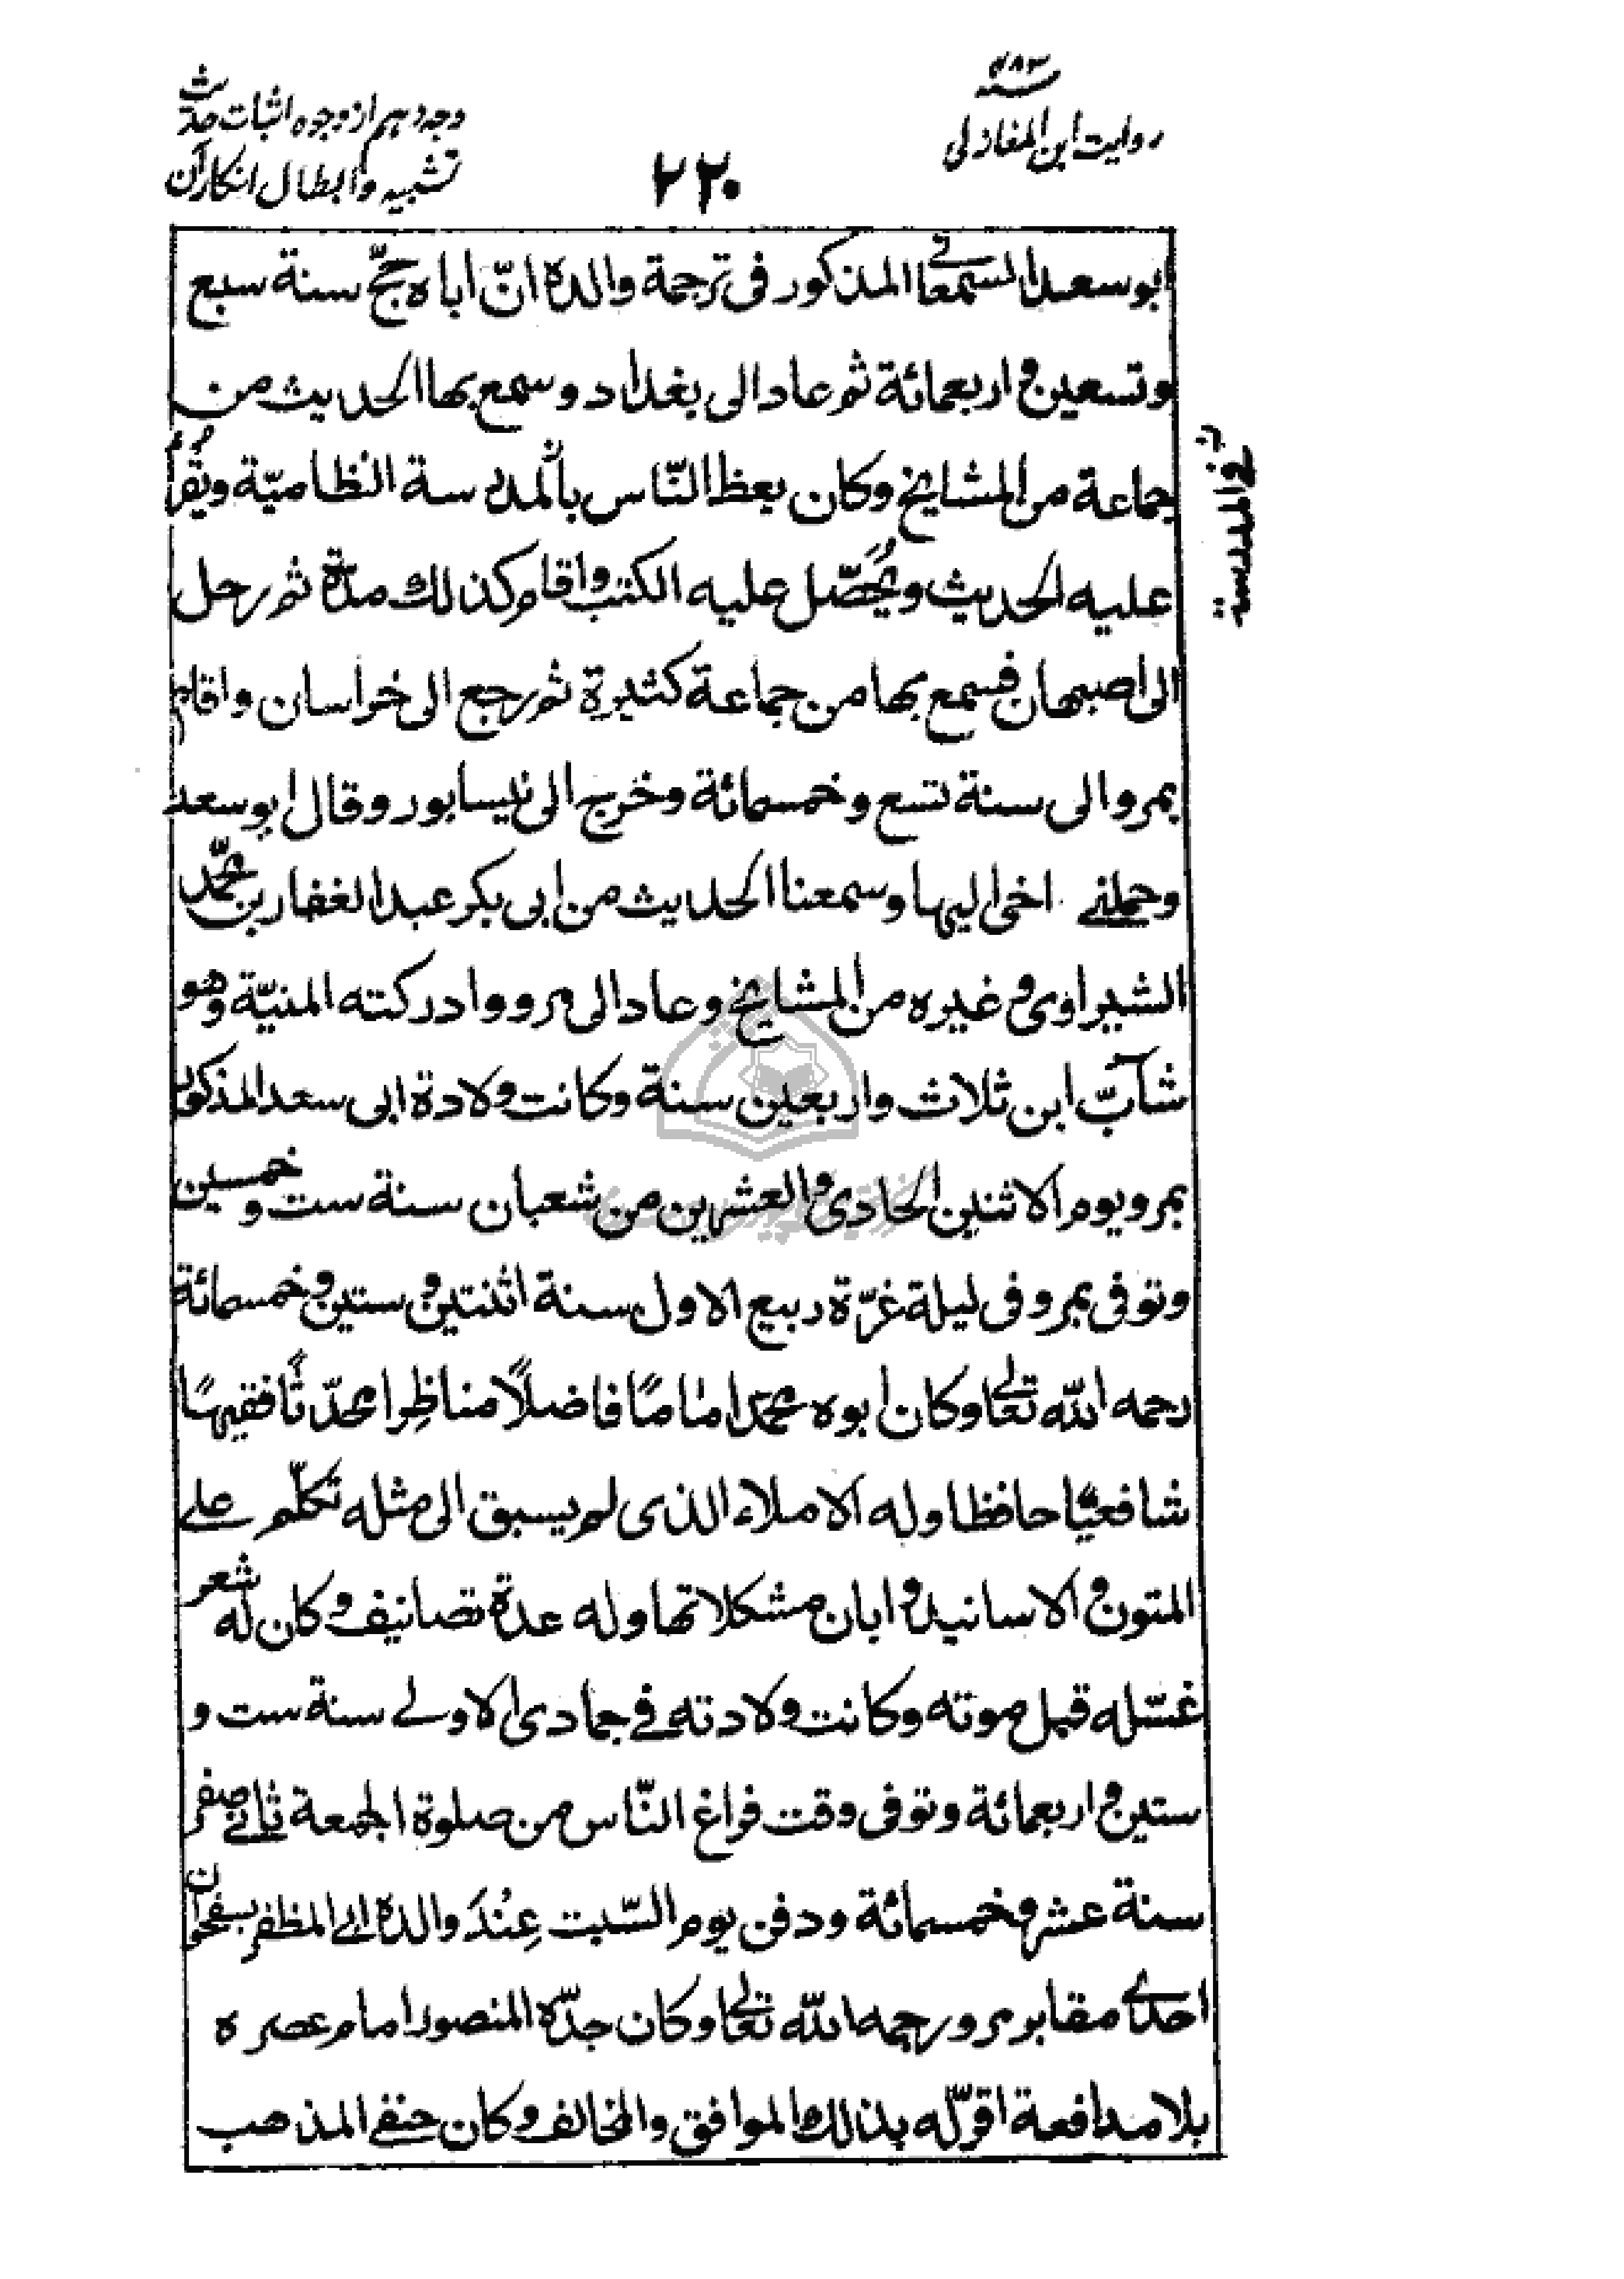 سنه ۴۸۳
روایت ابن المغازلی
۲۲۰
وجه دهم از وجوه اثبات حدیث
تشبیه و ابطال انکار آن
ابو سعد السمعانی المذكور فی ترجمة والده انّ اباه حجّ سنة سبع
وتسعین و اربعمائة ثم عاد الی بغداد و سمع بها الحدیث من
جماعة من المشایخ وكان یعظ النّاس بالمدرسة النظامیّة ویُقرأُ
فی المدرسة
علیه الحدیث ویُحَصّل علیه الكتب واقام كذلك مدّة ثم رحل
الی اصبهان فسمع بها من جماعة كثیرة ثم رجع الی خراسان واقام
بمرو الی سنة تسع وخمسمائة وخرج الی نیسابور وقال ابو سعد
وحملنی اخی الیها وسمعنا الحدیث من ابی بكر عبد الغفار بن محمّد
الشیراوی وغیره من المشایخ وعاد الی مرو وادركته المنیّة وهو
شآبّ ابن ثلاث واربعین سنة وكانت ولادة ابی سعد المذكور
بمرو یوم الاثنین الحادی والعشرین من شعبان سنة ست وخمسین
وتوفی بمرو فی لیلة غرّة ربیع الاول سنة اثنتین وستین وخمسمائة
رحمه اللّه تعالی وكان ابوه محمّد اماما فاضلاً مناظِرا محدّثًا فقیهًا
شافعیًّا حافظا وله الاملاء الذی لم یسبق الی مثله تكلّم علی
المتون والاسانید وابان مشكلاتها وله عدة تصانیف وكان له شعر
غسّله قبل موته وكانت ولادته فی جمادی الاولی سنة ست و
ستین و اربعمائة وتوفی وقت فراغ النّاس من صلوة الجمعة ثانی صفر
سنة عشر وخمسمائة ودفن یوم السّبت عِنْدَ والده ابی المظفر بسفحوان
احدی مقابر مرو رحمه اللّه تعالی وكان جدّه المنصور امام عصره
بلا مدافعة اقرّ له بذلك الموافق والمخالف وكان حنفی المذهب